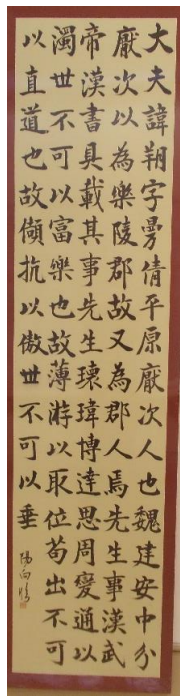 大夫諱朔字曼倩平原厭次人也魏建安中分
厭次以為樂陵郡故又為郡人焉先生事漢武
帝漢書具載其事先生瓌瑋博達思周變通以
濁世不可以富樂也故薄游以取位苟出不可
以直道也故傾抗以傲世不可以垂